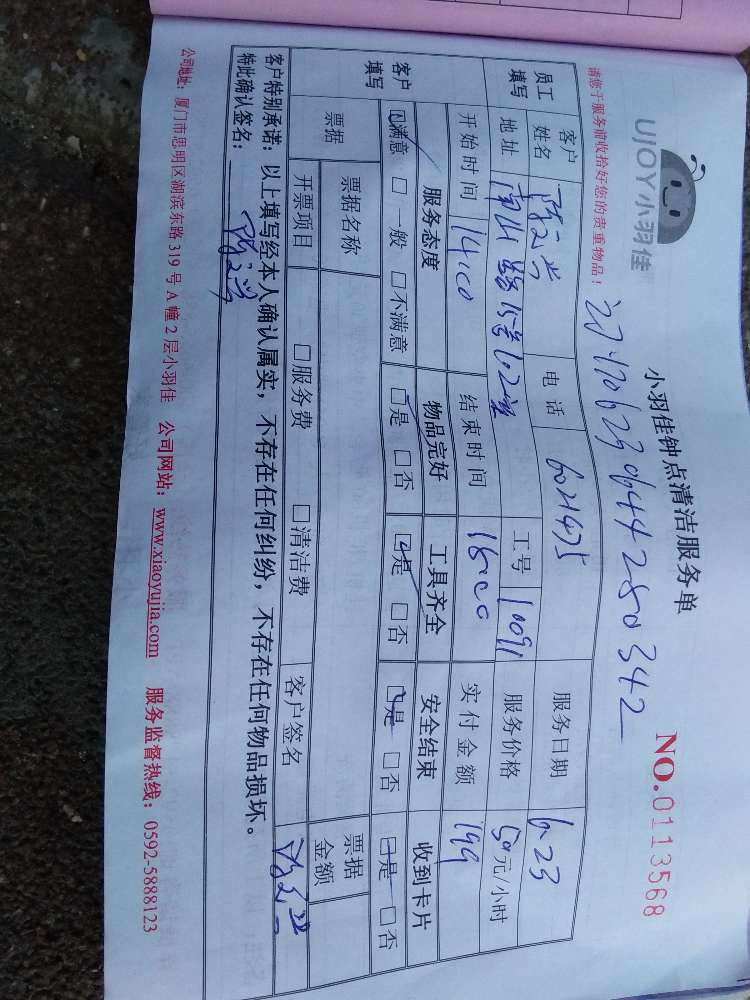 UJOY小羽佳
小羽佳钟点清洁服务单
NO.0113568
请您于服务前收拾好您的贵重物品!
201706230644280342
员工填写 客户姓名 电话 6021475 服务日期 6.23
地址 南山路15号102室 工号 10091 服务价格 50元/小时
开始时间 14:00 结束时间 18:00 实付金额 199
客户填写 服务态度 物品完好 工具齐全 安全结束 收到卡片
☑满意 □一般 □不满意 ☑是 □否 ☑是 □否 ☑是 □否 ☑是 □否
票据 票据名称 票据金额
开票项目 □服务费 □清洁费 客户签名
客户特别承诺:以上填写经本人确认属实,不存在任何纠纷,不存在任何物品损坏。
特此确认签名:
公司地址:厦门市思明区湖滨东路319号A幢2层小羽佳 公司网站:www.xiaoyujia.com 服务监督热线:0592-5888123